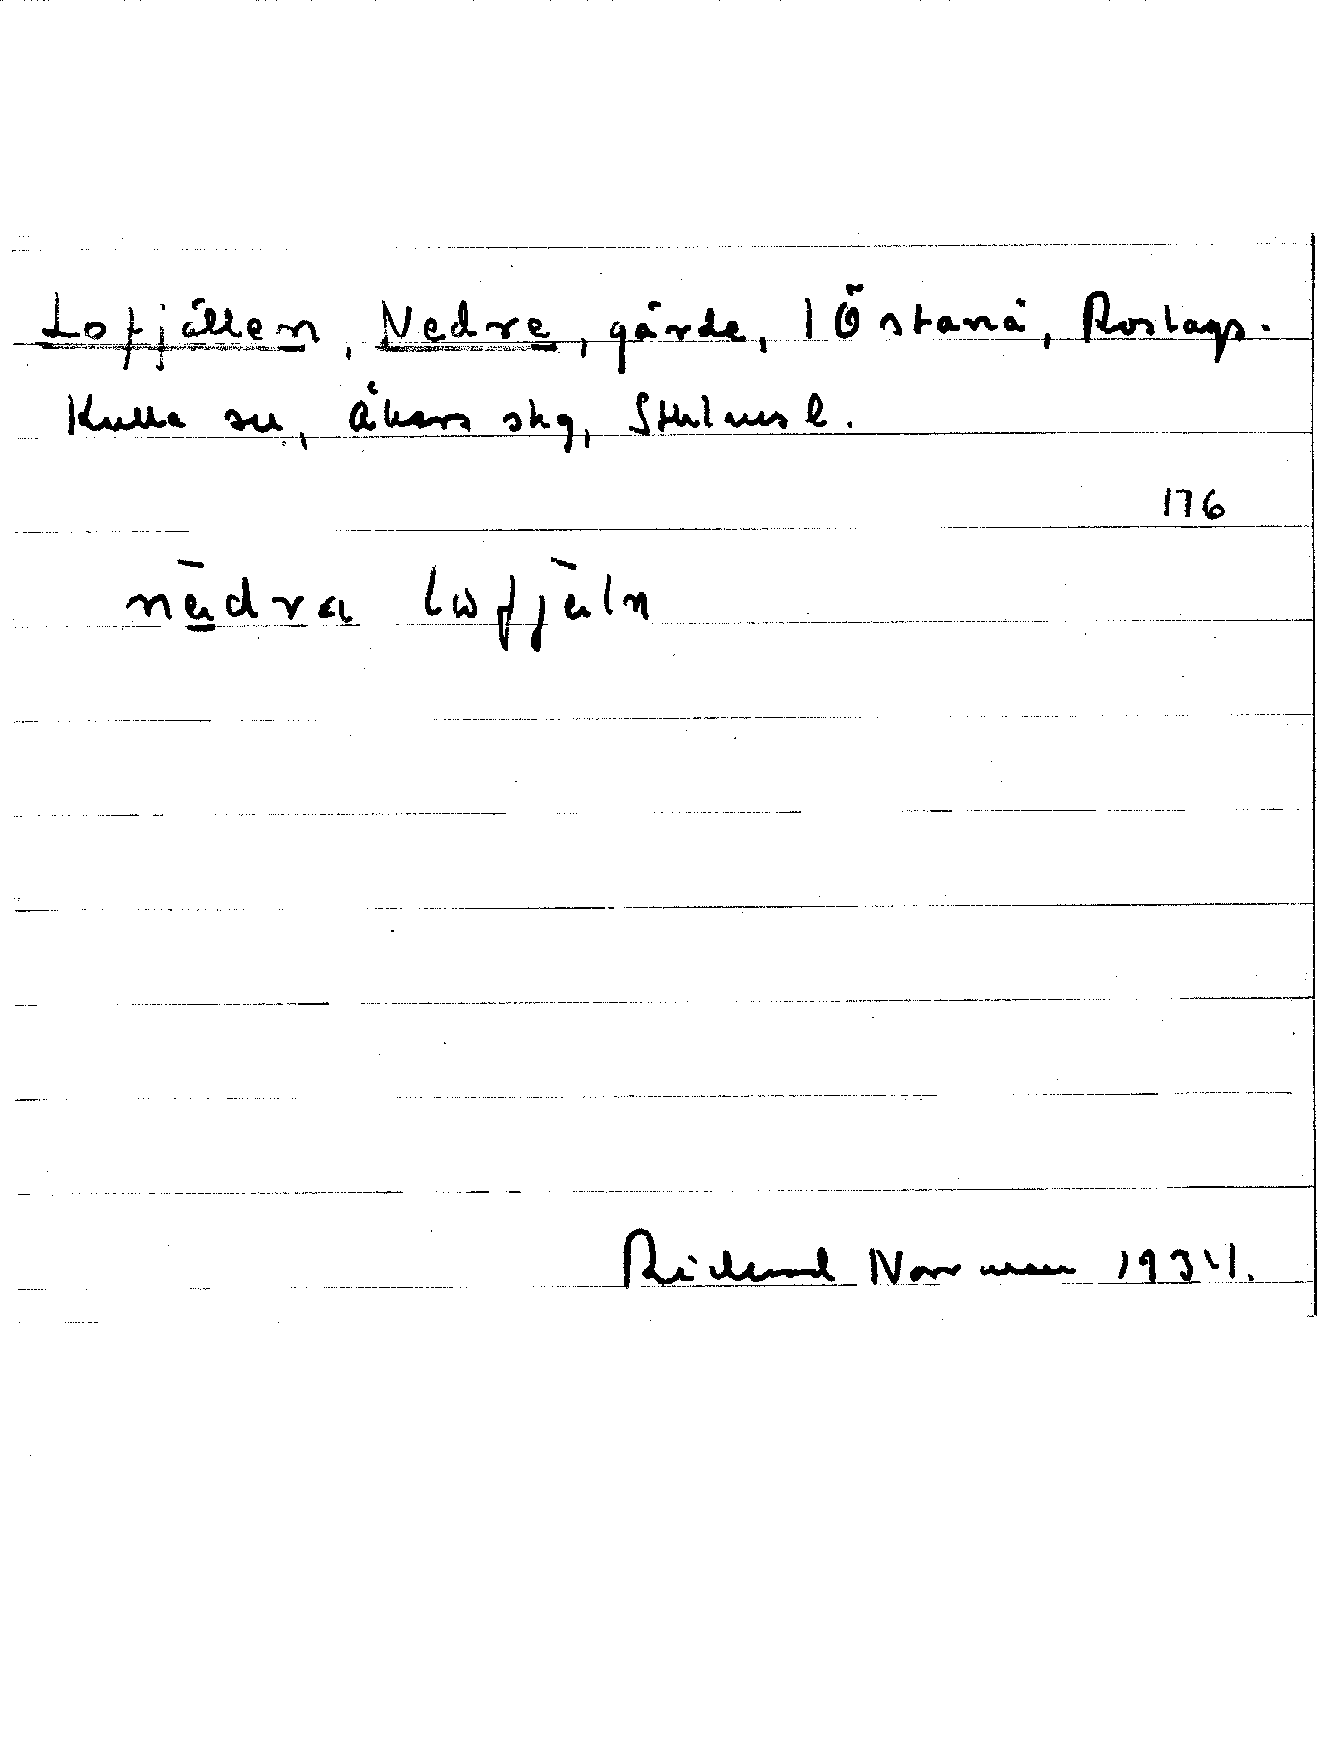 Lofjällen, Nedre, gärde, 1 Östanå, Roslags-
Kulla sn, Åkers skg, Sthlms l.
176
nēdra lωfjēln
Rickard Norrman 1934.